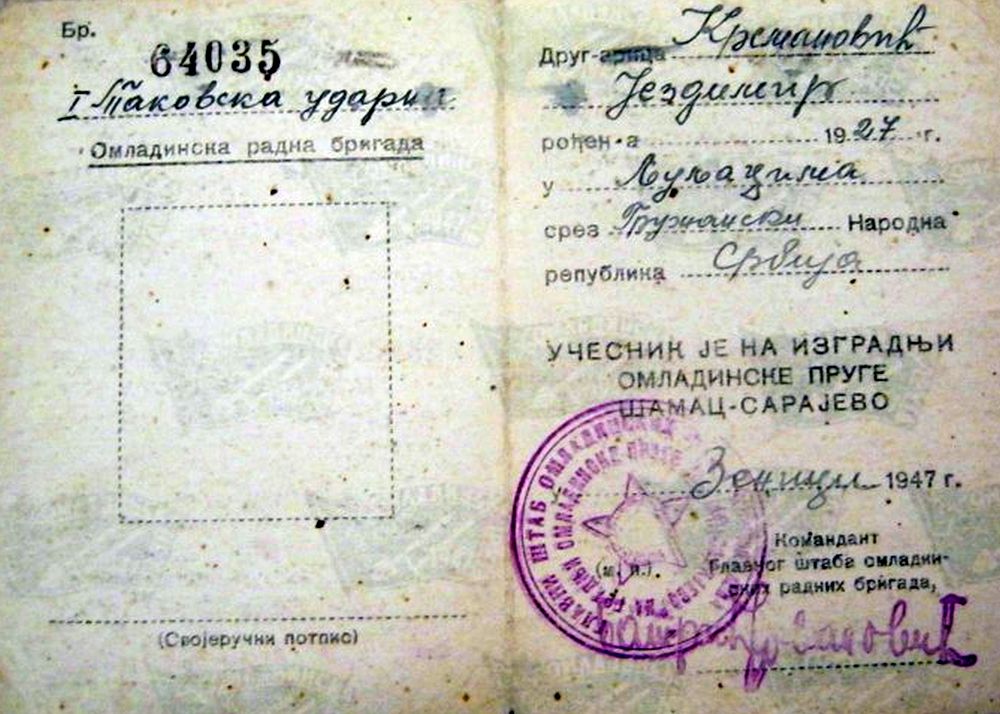 Бр.
64035
I Таковска ударна
Омладинска радна бригада
(Својеручни потпис)
Друг-арица Крсмановић
Јездимир
рођен-а 1927 г.
у Љуљацима
срез Гружански Народна
република Србија
УЧЕСНИК ЈЕ НА ИЗГРАДЊИ
ОМЛАДИНСКЕ ПРУГЕ
ШАМАЦ-САРАЈЕВО
Зеници 1947 г.
Командант
Главног штаба омладин-
ских радних бригада,
(м. п.)
ГЛАВНИ ШТАБ ОМЛАДИНСКИХ
ОМЛАДИНСКЕ ПРУГЕ